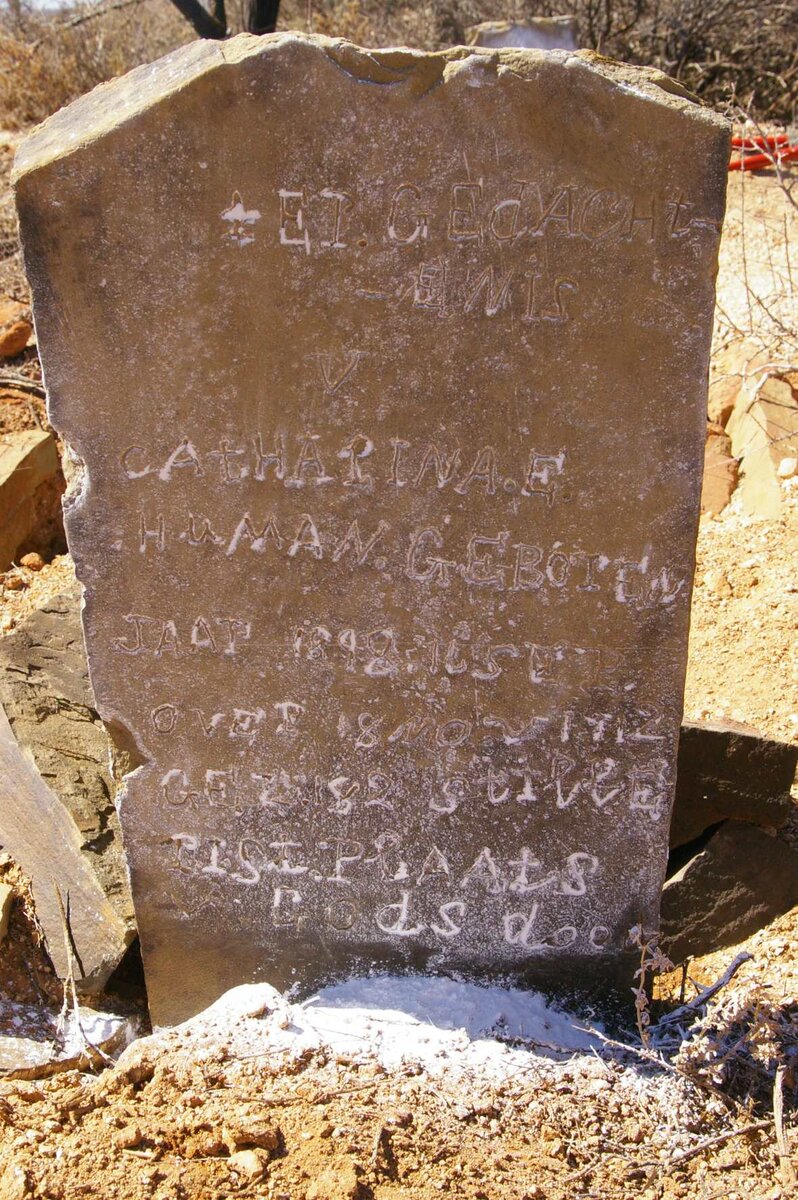 ET. GEdACHt-
-ENIS
V
CAtHARINA. E.
HUMAN. GEBOREN
JAAR 1898. 16 SEP.
OVER 18 NOV 1912
GEZ. 182 StILLE
RUST. PLAAtS
GOdS